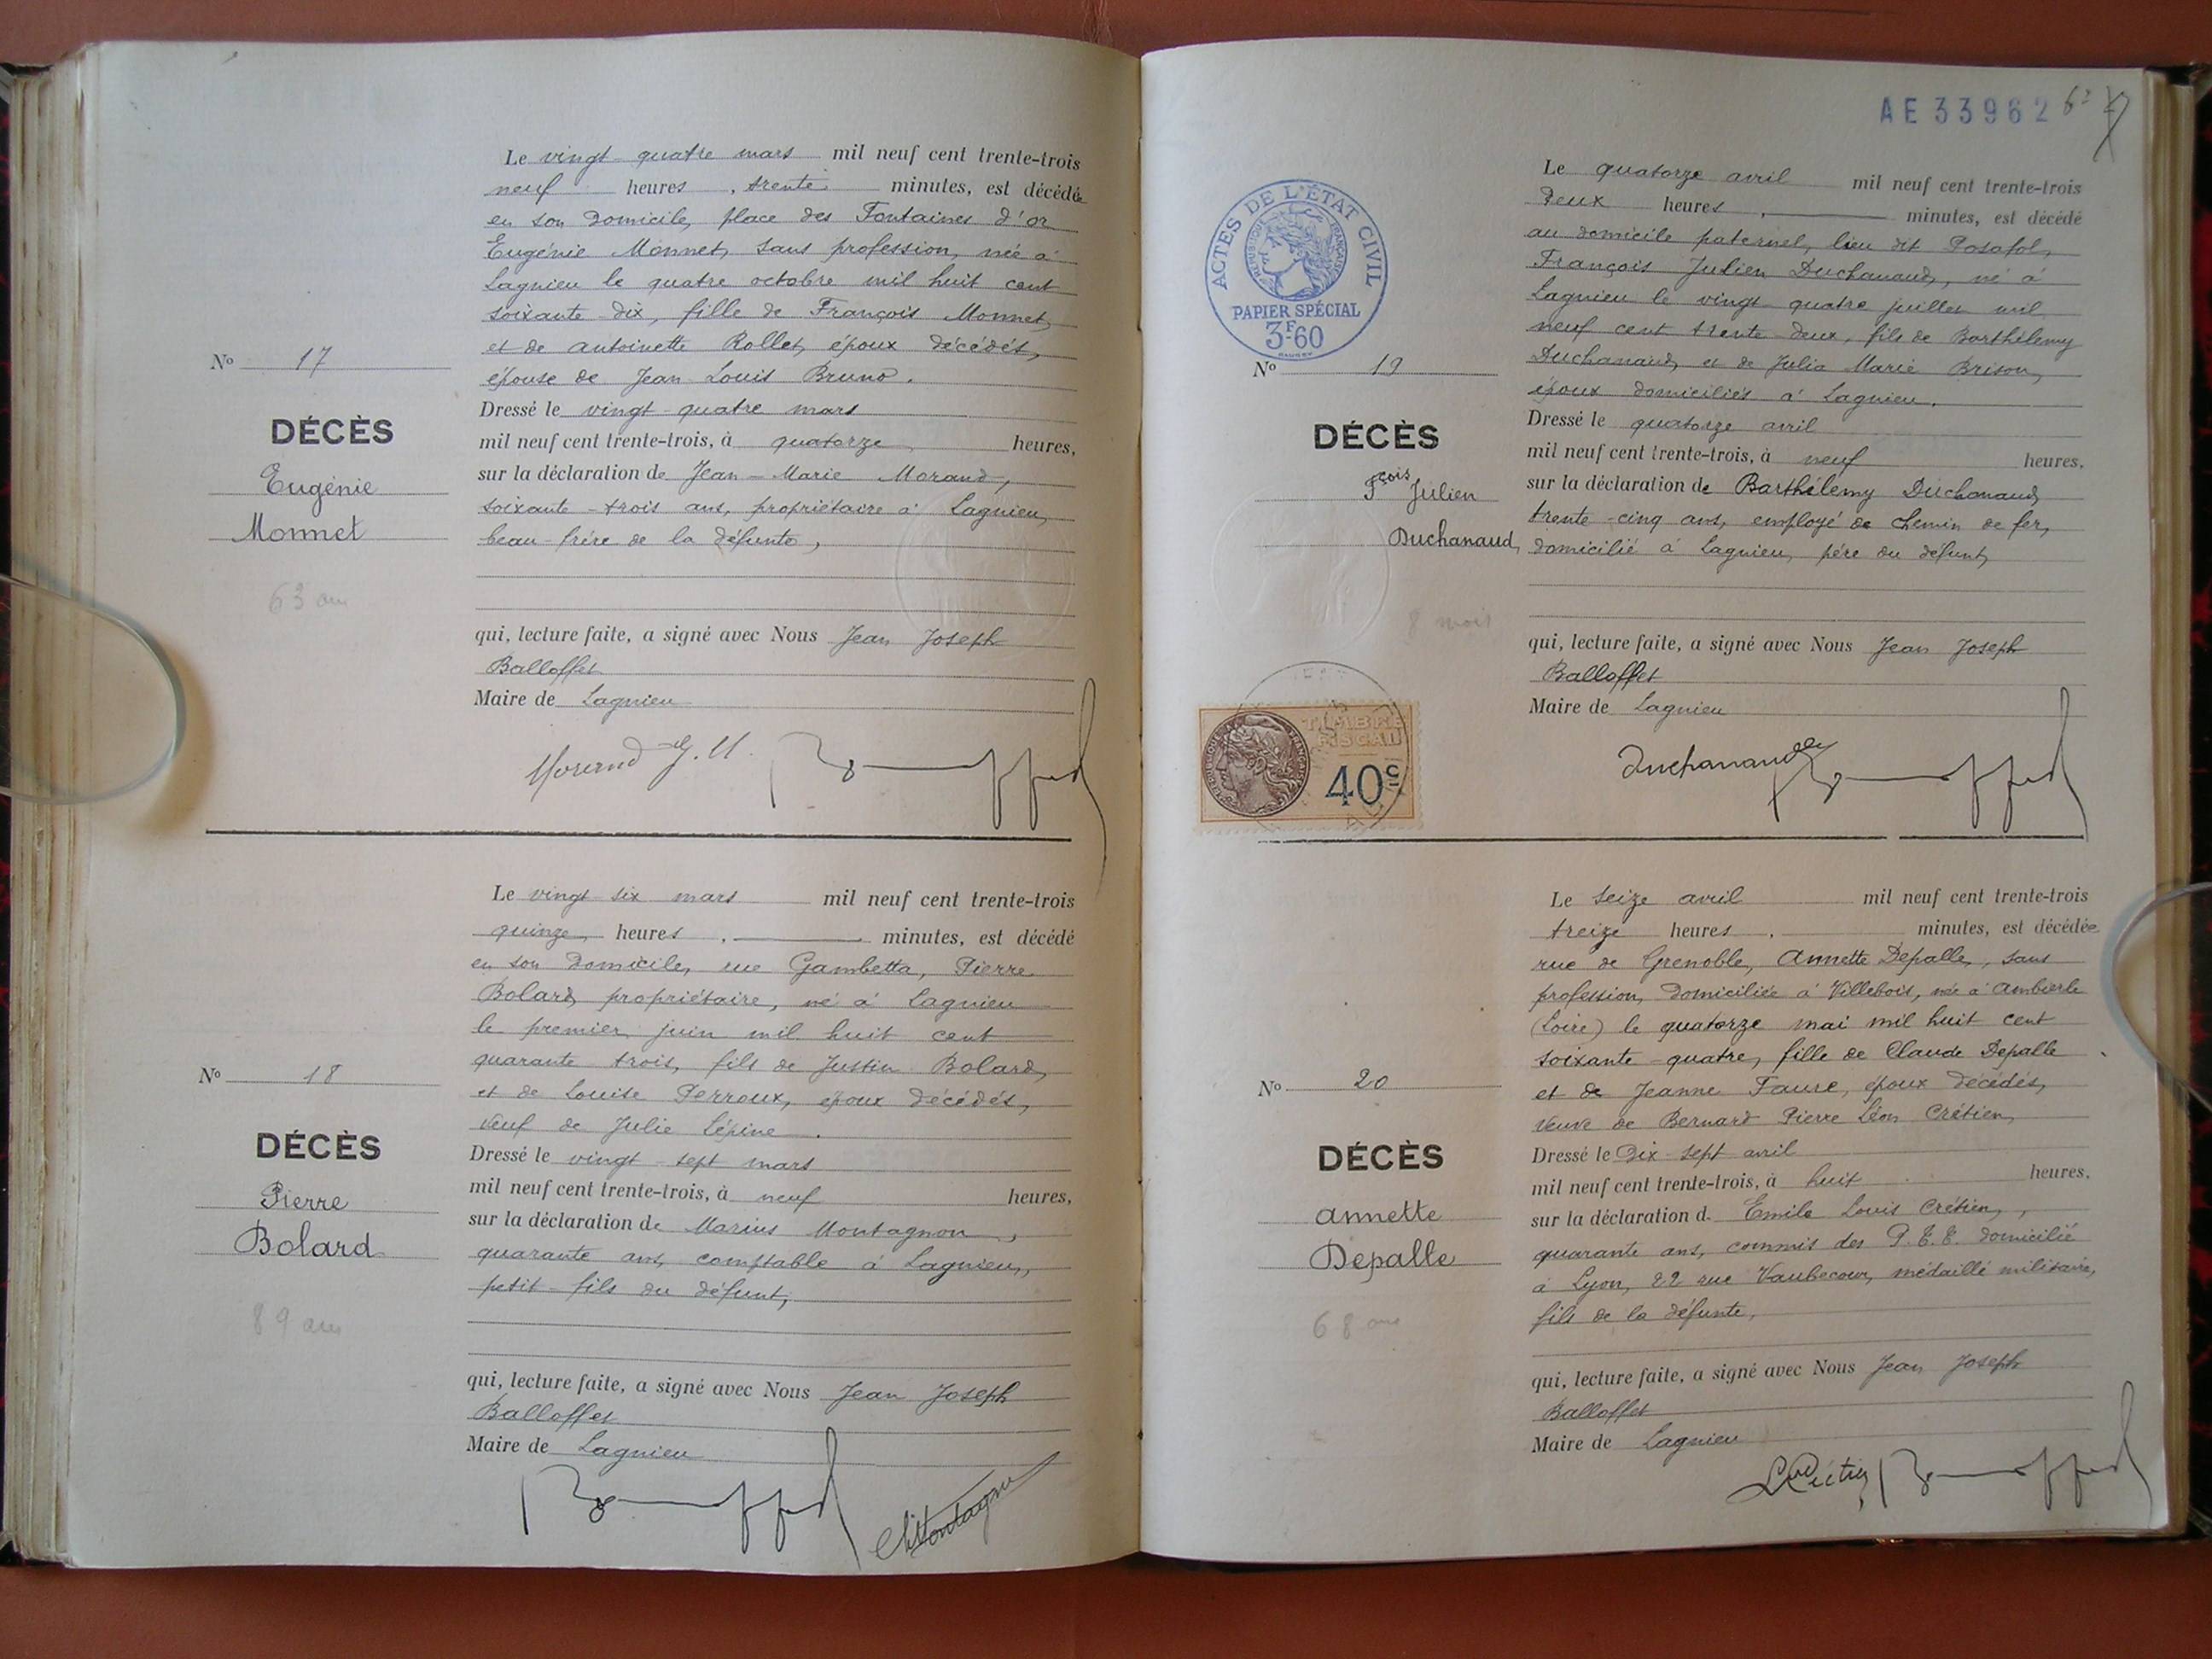 Le vingt-quatre mars mil neuf cent trente-trois
neuf heures, trente minutes, est décédée
en son domicile, place des Fontaines d'or
Eugénie Monnet, sans profession, née à
Lagnieu le quatre octobre mil huit cent
soixante-dix, fille de François Monnet,
et de Antoinette Rollet, époux décédés,
épouse de Jean Louis Bruno.
Nº 17
DÉCÈS
Eugénie
Monnet
63 ans
Dressé le vingt-quatre mars
mil neuf cent trente-trois, à quatorze heures,
sur la déclaration de Jean-Marie Morand,
soixante-trois ans, propriétaire à Lagnieu,
beau-frère de la défunte,
qui, lecture faite, a signé avec Nous Jean Joseph
Balloffet
Maire de Lagnieu
Morand J. M.
Le vingt-six mars mil neuf cent trente-trois
quinze heures, minutes, est décédé
en son domicile, rue Gambetta, Pierre
Bolard, propriétaire, né à Lagnieu
le premier juin mil huit cent
quarante trois, fils de Justin Bolard,
et de Louise Perroux, époux décédés,
veuf de Julie Lépine.
Nº 18
DÉCÈS
Pierre
Bolard
89 ans
Dressé le vingt-sept mars
mil neuf cent trente-trois, à neuf heures,
sur la déclaration de Marius Montagnon,
quarante ans, comptable à Lagnieu,
petit-fils du défunt,
qui, lecture faite, a signé avec Nous Jean Joseph
Balloffet
Maire de Lagnieu
Montagnon
AE 33962
ACTES DE L'ÉTAT CIVIL
RÉPUBLIQUE FRANÇAISE
PAPIER SPÉCIAL
3F60
Le quatorze avril mil neuf cent trente-trois
Deux heures, minutes, est décédé
au domicile paternel, lieu dit Posafol,
François Julien Duchanaud, né à
Lagnieu le vingt-quatre juillet mil
neuf cent trente-deux, fils de Barthélemy
Duchanaud, et de Julia Marie Brison,
époux domiciliés à Lagnieu.
Nº 19
DÉCÈS
Fçois Julien
Duchanaud,
8 mois
Dressé le quatorze avril
mil neuf cent trente-trois, à neuf heures,
sur la déclaration de Barthélemy Duchanaud,
trente-cinq ans, employé de chemin de fer,
domicilié à Lagnieu, père du défunt,
qui, lecture faite, a signé avec Nous Jean Joseph
Balloffet
Maire de Lagnieu
TIMBRE
FISCAL
40c
Duchanaud
Le seize avril mil neuf cent trente-trois
treize heures, minutes, est décédée
rue de Grenoble, Annette Depalle, sans
profession, domiciliée à Villebois, née à Ambierle
(Loire) le quatorze mai mil huit cent
soixante-quatre, fille de Claude Depalle
et de Jeanne Faure, époux décédés,
veuve de Bernard Pierre Léon Crétien,
Nº 20
DÉCÈS
Annette
Depalle
68 ans
Dressé le Dix-sept avril
mil neuf cent trente-trois, à huit heures,
sur la déclaration d. Emile Louis Crétien,
quarante ans, commis des P.T.T. domicilié
à Lyon, 22 rue Vaubecour, médaillé militaire,
fils de la défunte,
qui, lecture faite, a signé avec Nous Jean Joseph
Balloffet
Maire de Lagnieu